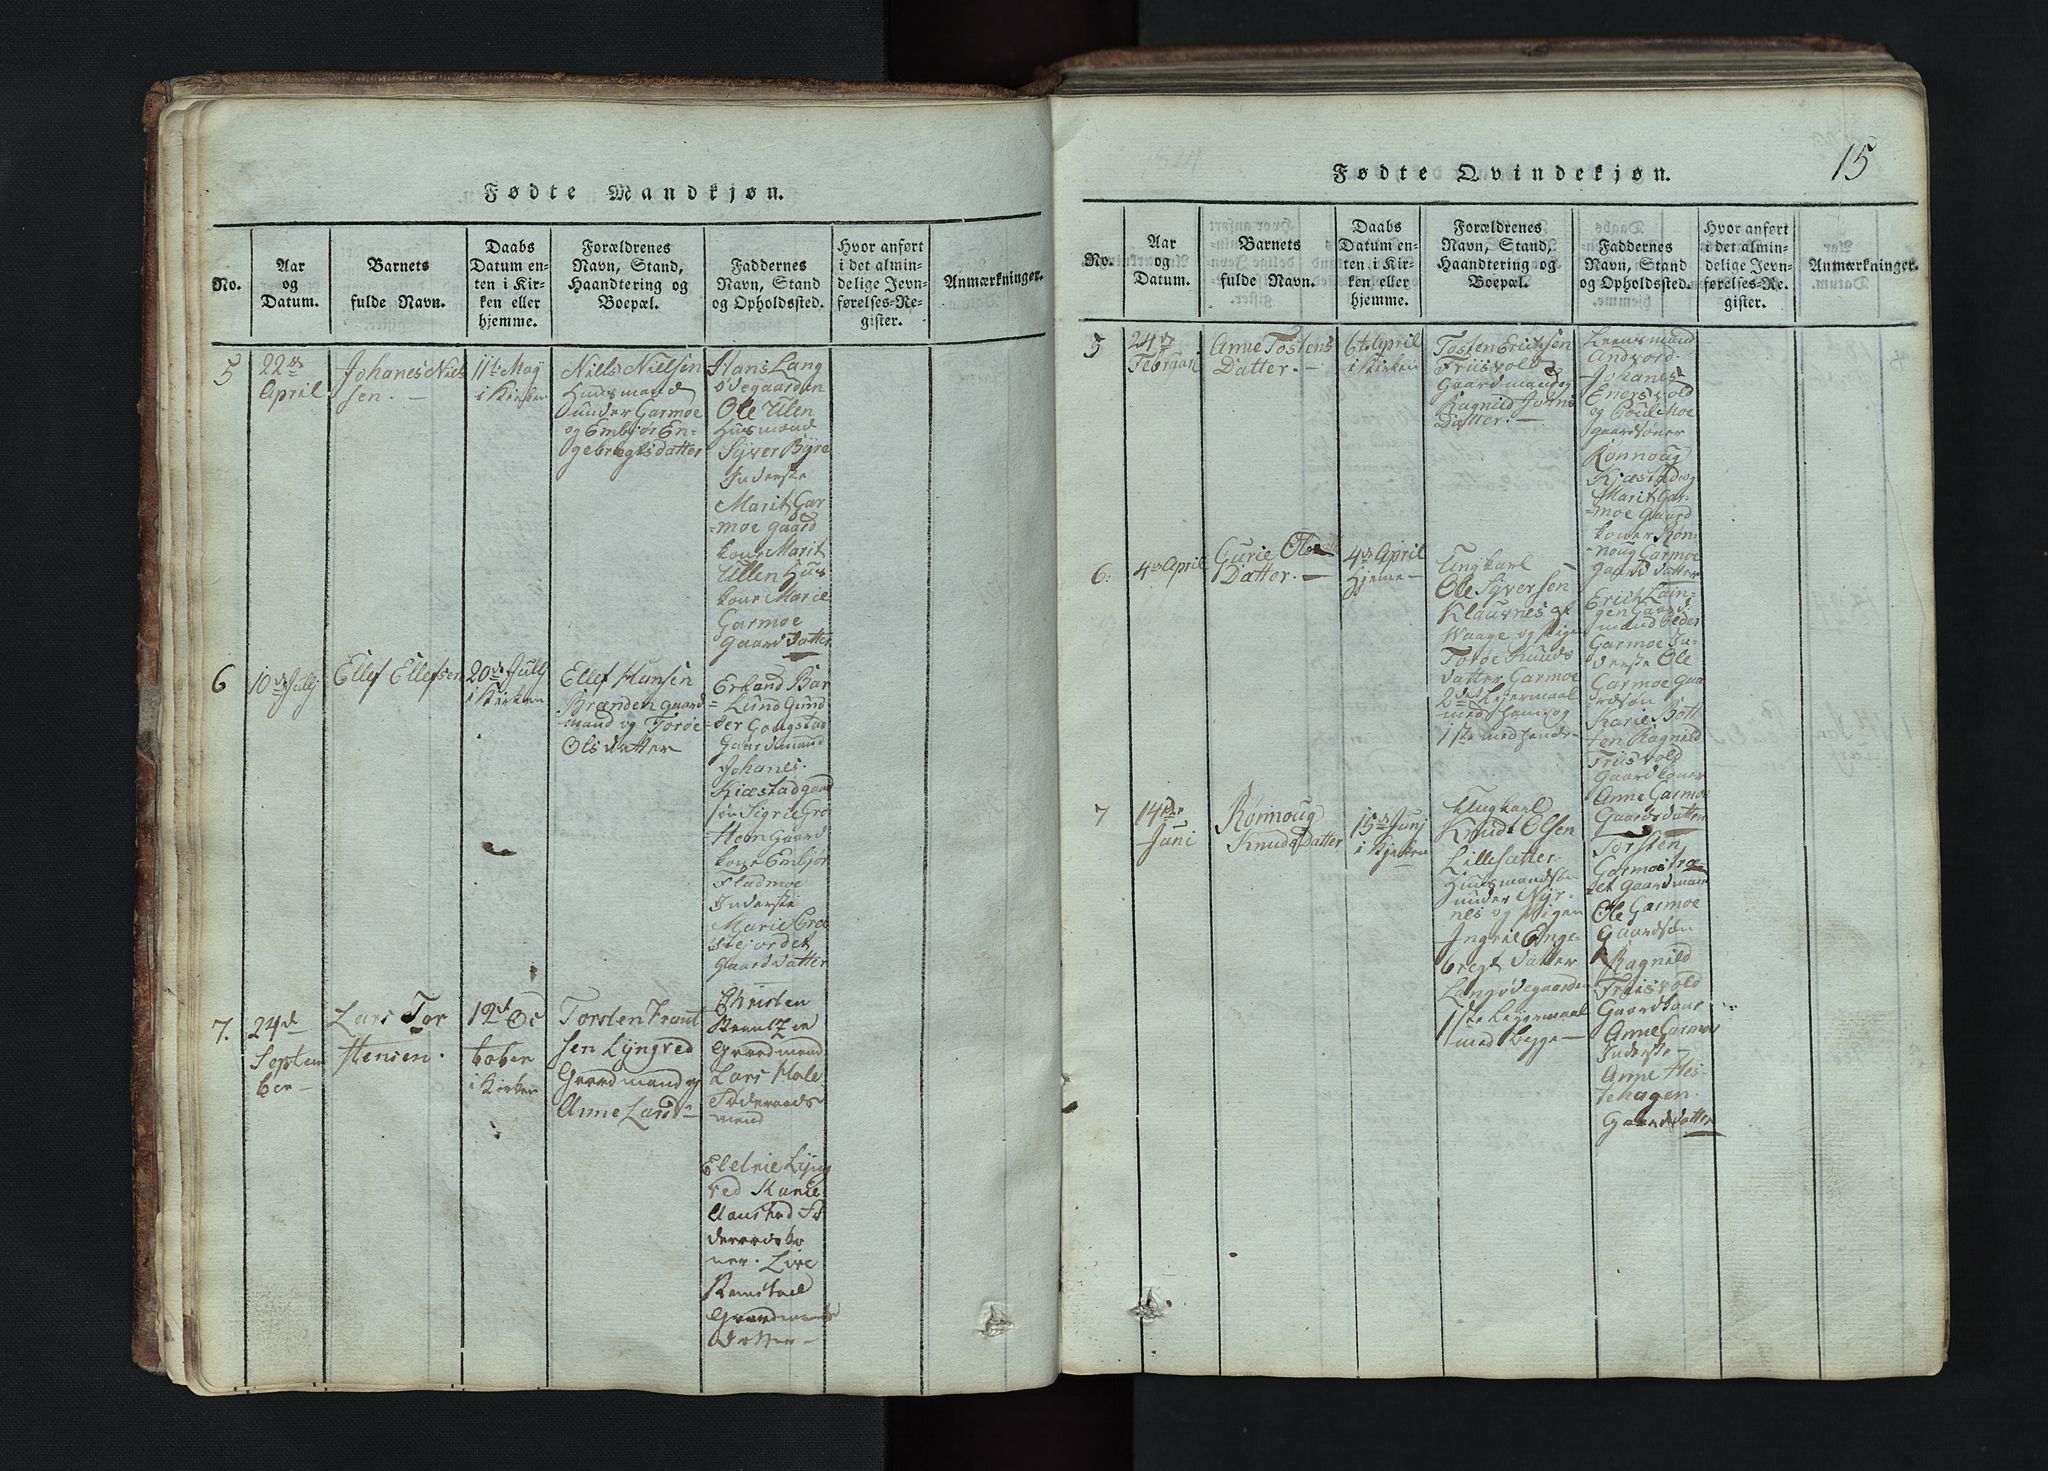 Fødte Mandkjøn.
No.
Aar
og
Datum.
Barnets
fulde Navn.
Daabs
Datum en-
ten i Kir-
ken eller
hjemme.
Forældrenes
Navn, Stand,
Haandtering og
Boepæl.
Faddernes
Navn, Stand
og Opholdssted.
Hvor anført
i det almin-
delige Jevn-
førelses-Re-
gister.
Anmærkninger.
5
22de
April
Johanes Niel-
sen.
11te Maj
i Kirken
Niels Nielsen
Huusmand
under Garmoe
og Embjør En-
gebregtsdatter
Hans Lang
ødegaarden
Ole Ulen
Huusmænd
Syver Byre
Inderste
Marit Gar
=moe gaard
kone Marit
Ullen Huus
kone Marie
Garmoe
Gaarddatter
6
10de Julj
Ellef Ellefsen
20de Julj
i Kirken
Ellef Hansen
Brænden gaard
mand og Torøe
Olsdatter
Erland Bar
=Lund Gund
der Gaugstad
Gaardmænd
Johanes
Kiæstad gaard
søn Sigrie Grø
Heen Gaard
kone Embjør
Fladmoe
Inderste
Marie Græ
stejordet
Gaarddatter
7.
24de
Septem
ber
Lars Tor
stensen.
12de Oc
tober
i Kirken
Torsten
sen Lyngved
Gaardmand og
Anne Larsd
Christen
Gaardmænd
Lars
Føderaads
mand
Eldrie Lyng
ved Marie
Aanstad Fø
deraadsko
ner. Live
Ramstad
Gaardmands
Datter
Fødte Qvindekjøn.
15
No.
Aar
og
Datum.
Barnets
fulde Navn.
Daabs
Datum en-
ten i Kir-
ken eller
hjemme.
Forældrenes
Navn, Stand,
Haandtering og
Boepæl.
Faddernes
Navn, Stand
og Opholdssted.
Hvor anført
i det almin-
delige Jevn-
førelses-Re-
gister.
Anmærkninger.
5
24de
Februar
Anne Tostens
Datter.
6te April
i Kirken
Tosten Erichsen
Friisvold
Gaardmand og
Ragnild Johns
Datter.
Leensmand
Andvord
Johanes
Enersvold
og Poul Moe
gaardsøner
Rønnoug
Kjæstad og
Marit Gar-
=moe Gaard
koner Røn-
noug Garmoe
gaard datter
6.
4de April
Gurie Ols
Datter.
4de April
Hjeme
Ungkarl
Ole Syversen
Klauvnes af
Waage og Pigen
Torøe Knuds
datter Garmoe
2det Leiermaal
med ham og
1ste med hende
Erich Lain-
gen Gaard-
mand Peder
Garmoe In-
derste Ole
Garmoe Gaa
rdsøn
Karie Bott
ten Ragnild
Friisvold
Gaardkoner
Anne Garmoe
Gaardsdatter
7
14de
Juni
Rønnoug
Knuds Datter
15de Junj
i Kjrken
Ungkarl
Knudt Olsen
Lillesætter
Huusmandsøn
under Nyr-
nes og Pigen
Ingrie Enge-
bregt datter
Langødegaarden
1ste Leiermaal
med begge
Torsten
Garmostræ-
det gaardmand
Ole Garmoe
Gaardsøn
Ragnild
Friisvold
Gaardkone
Anne Garmoe
Inderste
Anne Hes-
tehagen
Gaarddatter